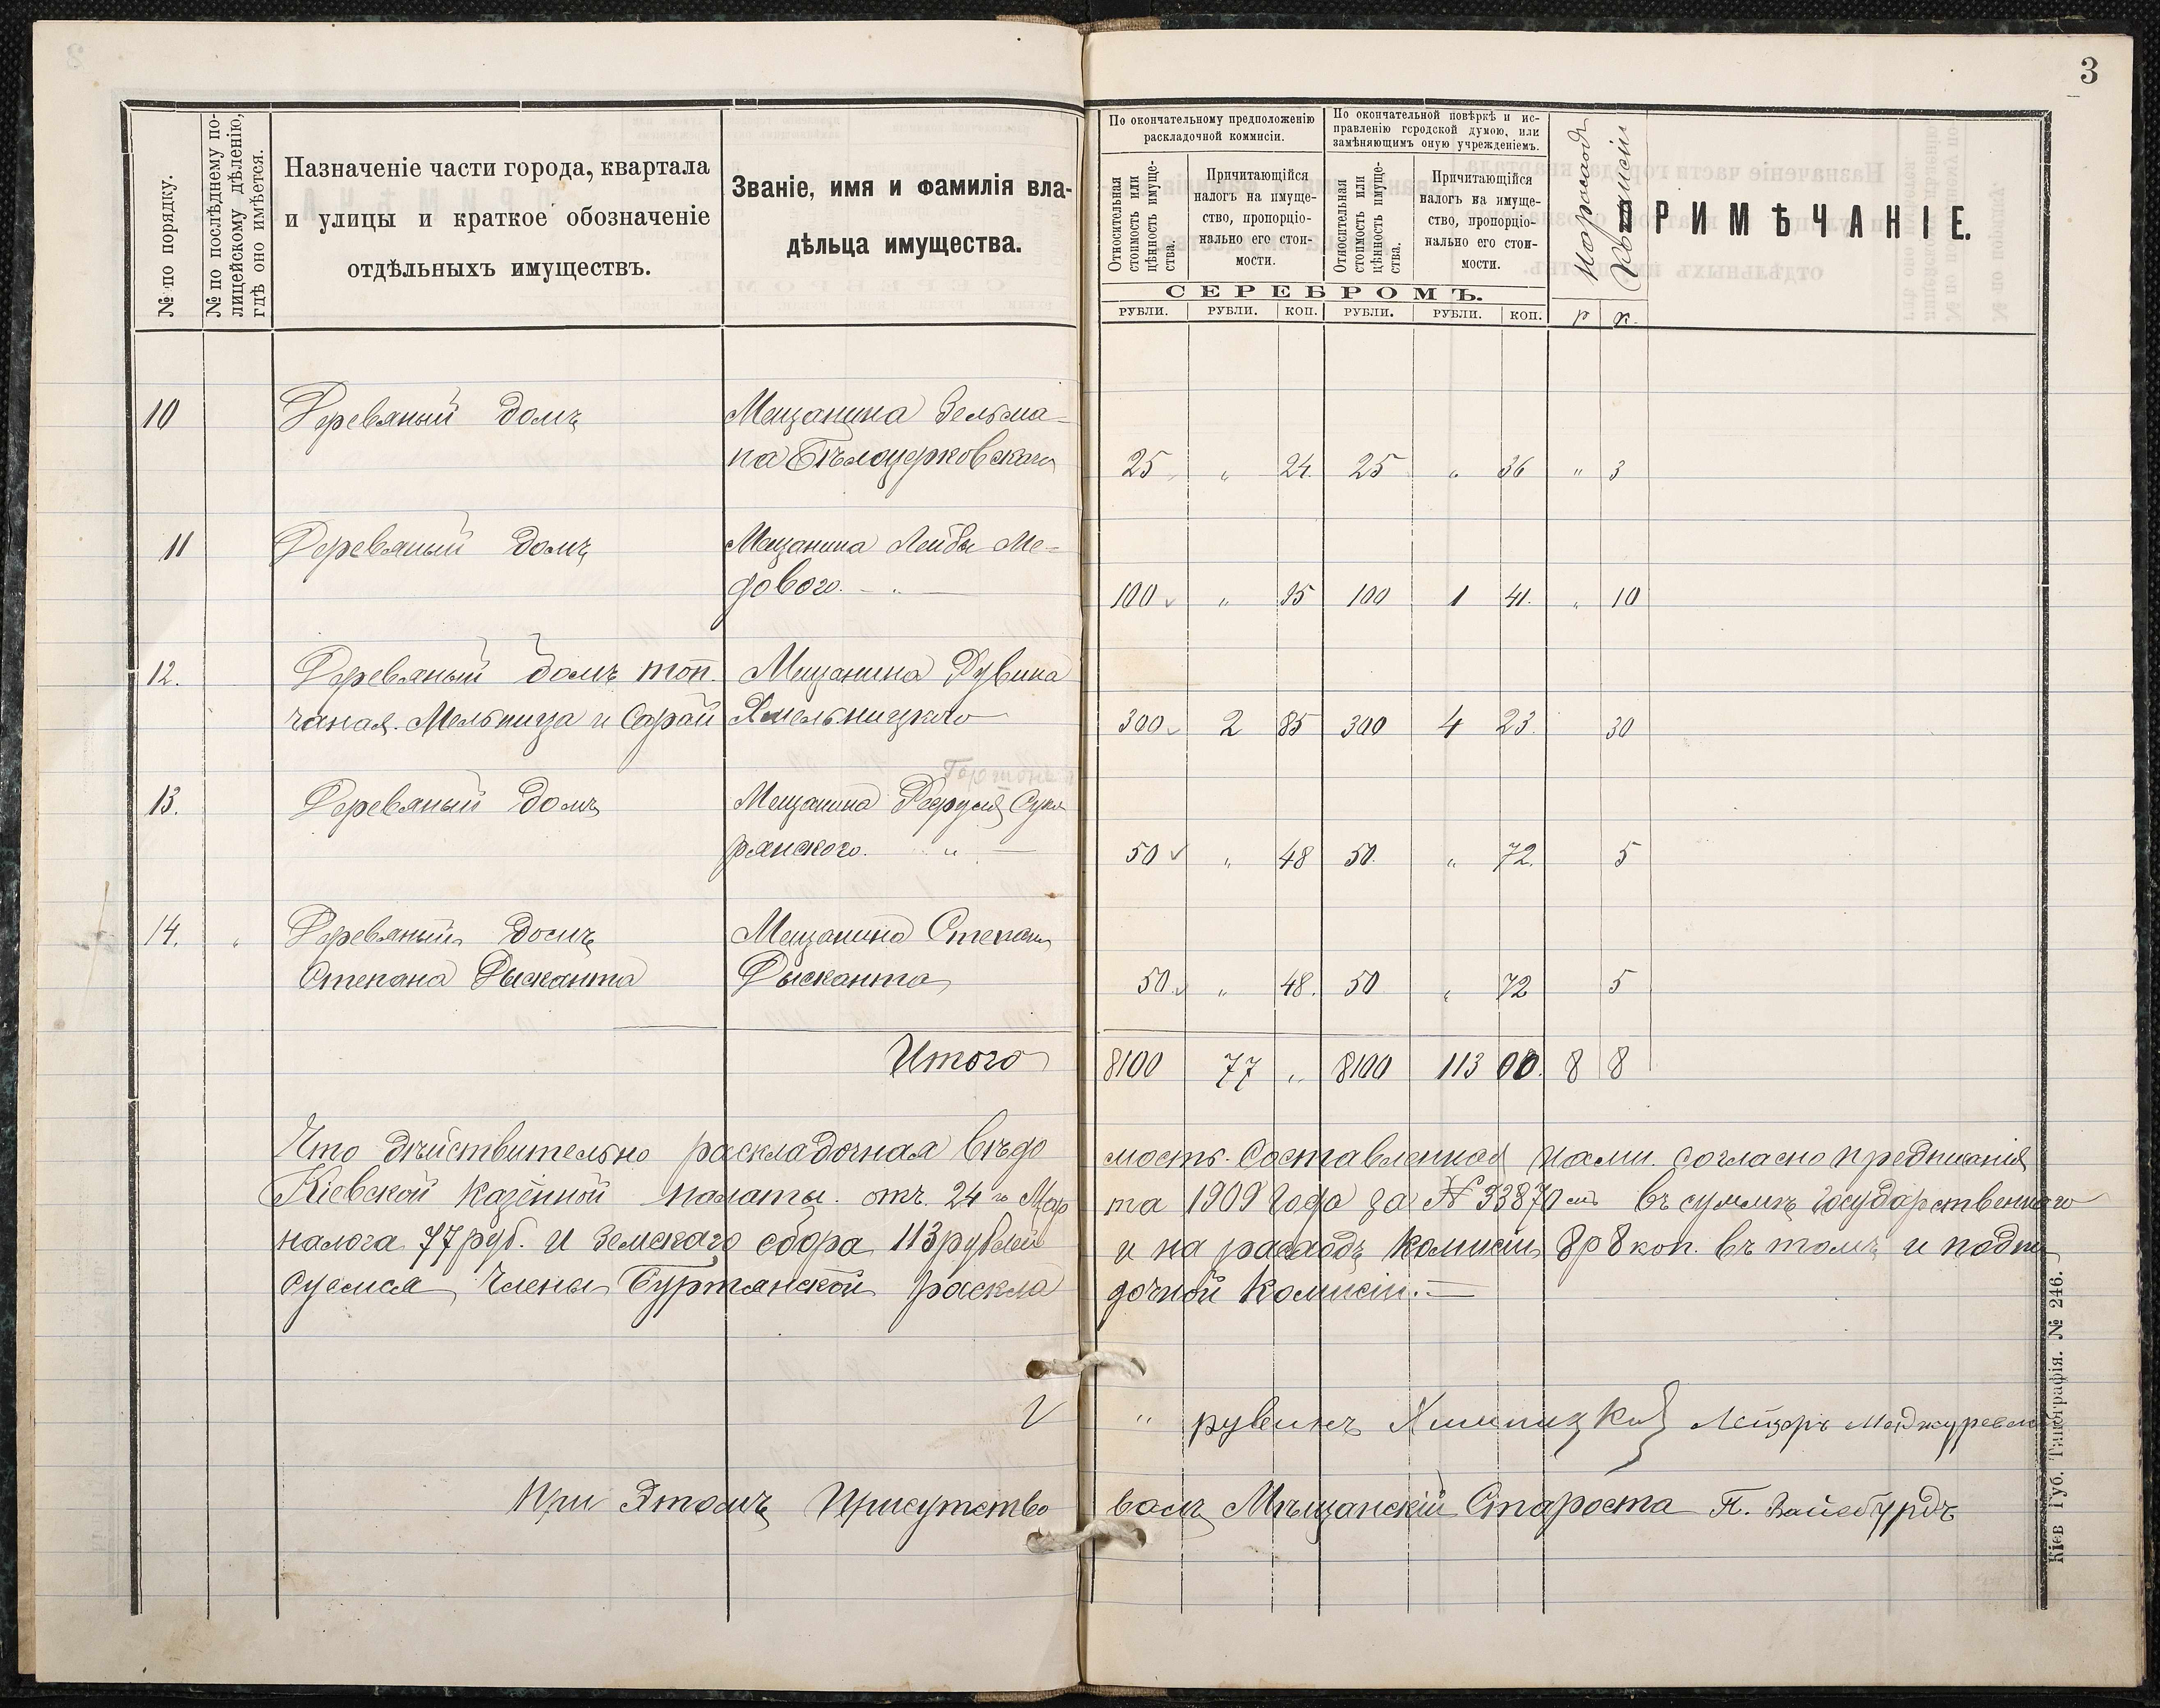 3
№ по порядку.
№ по послѣднему по-
лицейскому дѣленію,
гдѣ оно имѣется.
Назначеніе части города, квартала
и улицы и краткое обозначеніе
отдѣльныхъ имуществъ.
Званіе, имя и фамилія вла-
дѣльца имущества.
По окончательному предположенію
раскладочной коммисіи.
Относительная
стоимость или
цѣнность имуще-
ства.
Причитающійся
налогъ на имуще-
ство, пропорціо-
нально его стои-
мости.
По окончательной повѣркѣ и ис-
правленію городской думою, или
замѣняющимъ оную учрежденіемъ.
Относительная
стоимость или
цѣнность имуще-
ства.
Причитающійся
налогъ на имуще-
ство, пропорціо-
нально его стои-
мости.
На расходъ
Комисіи
ПРИМѢЧАНІЕ.
СЕРЕБРОМЪ.
РУБЛИ. РУБЛИ. КОП. РУБЛИ. РУБЛИ. КОП. р к.
10 Деревяный домъ Мещанина Зельма-
на Бѣлоцерковскаго 25 " 24 25 " 36 " 3
11 Деревяный домъ Мещанина Лейбы Ме-
дового. 100 " 95 100 1 41. " 10
12. Деревяный домъ топ- Мещанина Рувина
чаная. Мельница и Сарай Хмельницкого 300 2 85 300 4 23. 30
13. Деревяный домъ Мещанина
рянского. " 50 " 48 50. " 72. 5
14. " Деревяный домъ Мещанина Степана
Степана Дысканта Дысканта 50 " 48. 50 " 72 5
Итого 8100 77 " 8100 113 00. 8 8
Что дѣйствительно раскладочная вѣдо мость. Составленная нами. согласно предписанія
Кіевской казенной палаты. отъ. 24го Мар та 1909 года за № 33870мъ въ суммѣ государственного
налога 77 руб. и Земскаго сбора 113 рублей и на расходъ комисіи 8р 8 коп. въ томъ и подпи
суемся, Члены Буртянской раскла дочной Комисіи.
" рувинъ Лейзоръ
При Этомъ Присутство валъ Мѣщанскій Староста П. Вайсбурдъ
Кіев Губ. Типографія. № 246.